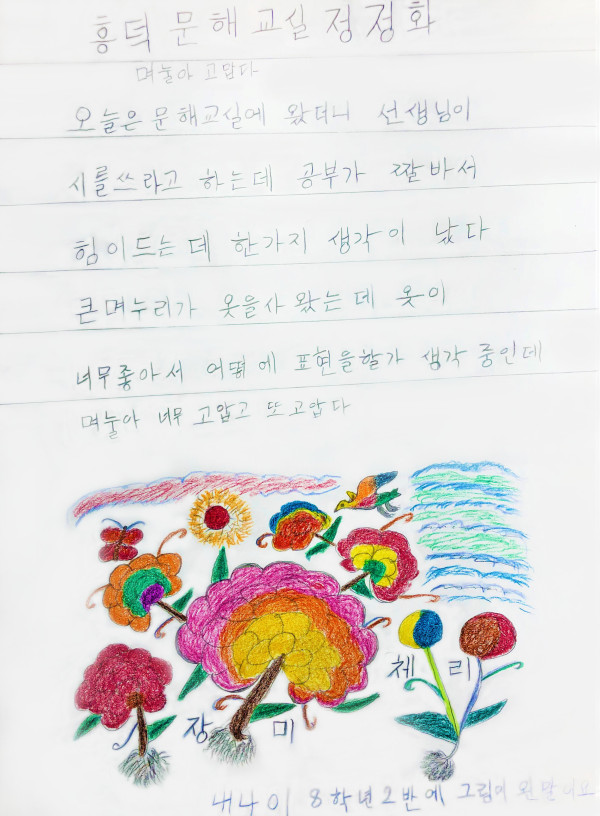 흥덕 문해교실 정정화
며눌아 고맙다
오늘은 문해교실에 왔더니 선생님이
시를쓰라고 하는데 공부가 짤바서
힘이드는데 한가지 생각이 났다
큰며누리가 옷을사 왔는데 옷이
너무좋아서 어떻에 표현을할가 생각 중인데
며눌아 너무 고맙고 또 고맙다
체리
장미
내나이 8학년2반에 그림이 왼말니요